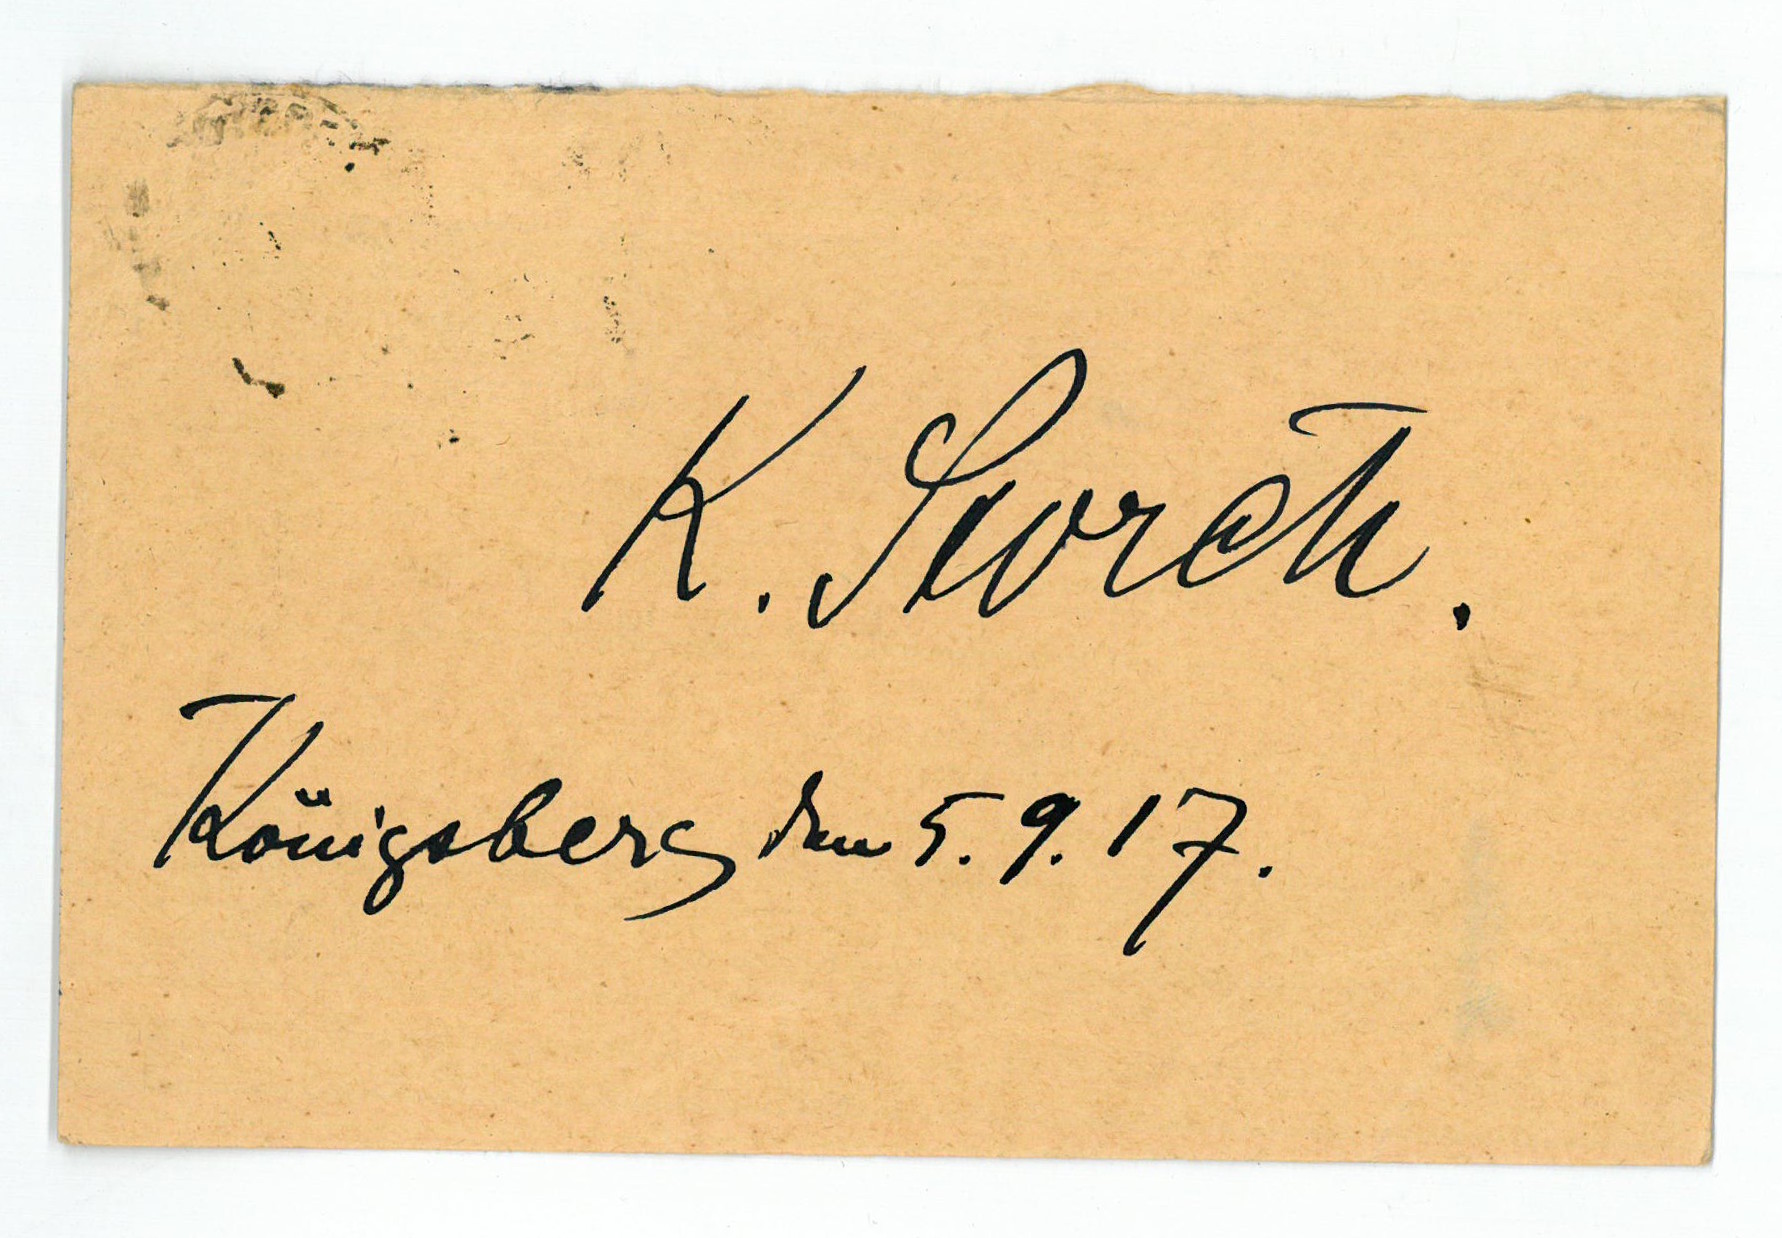 K. Storch.
Königsberg den 5. 9. 17.